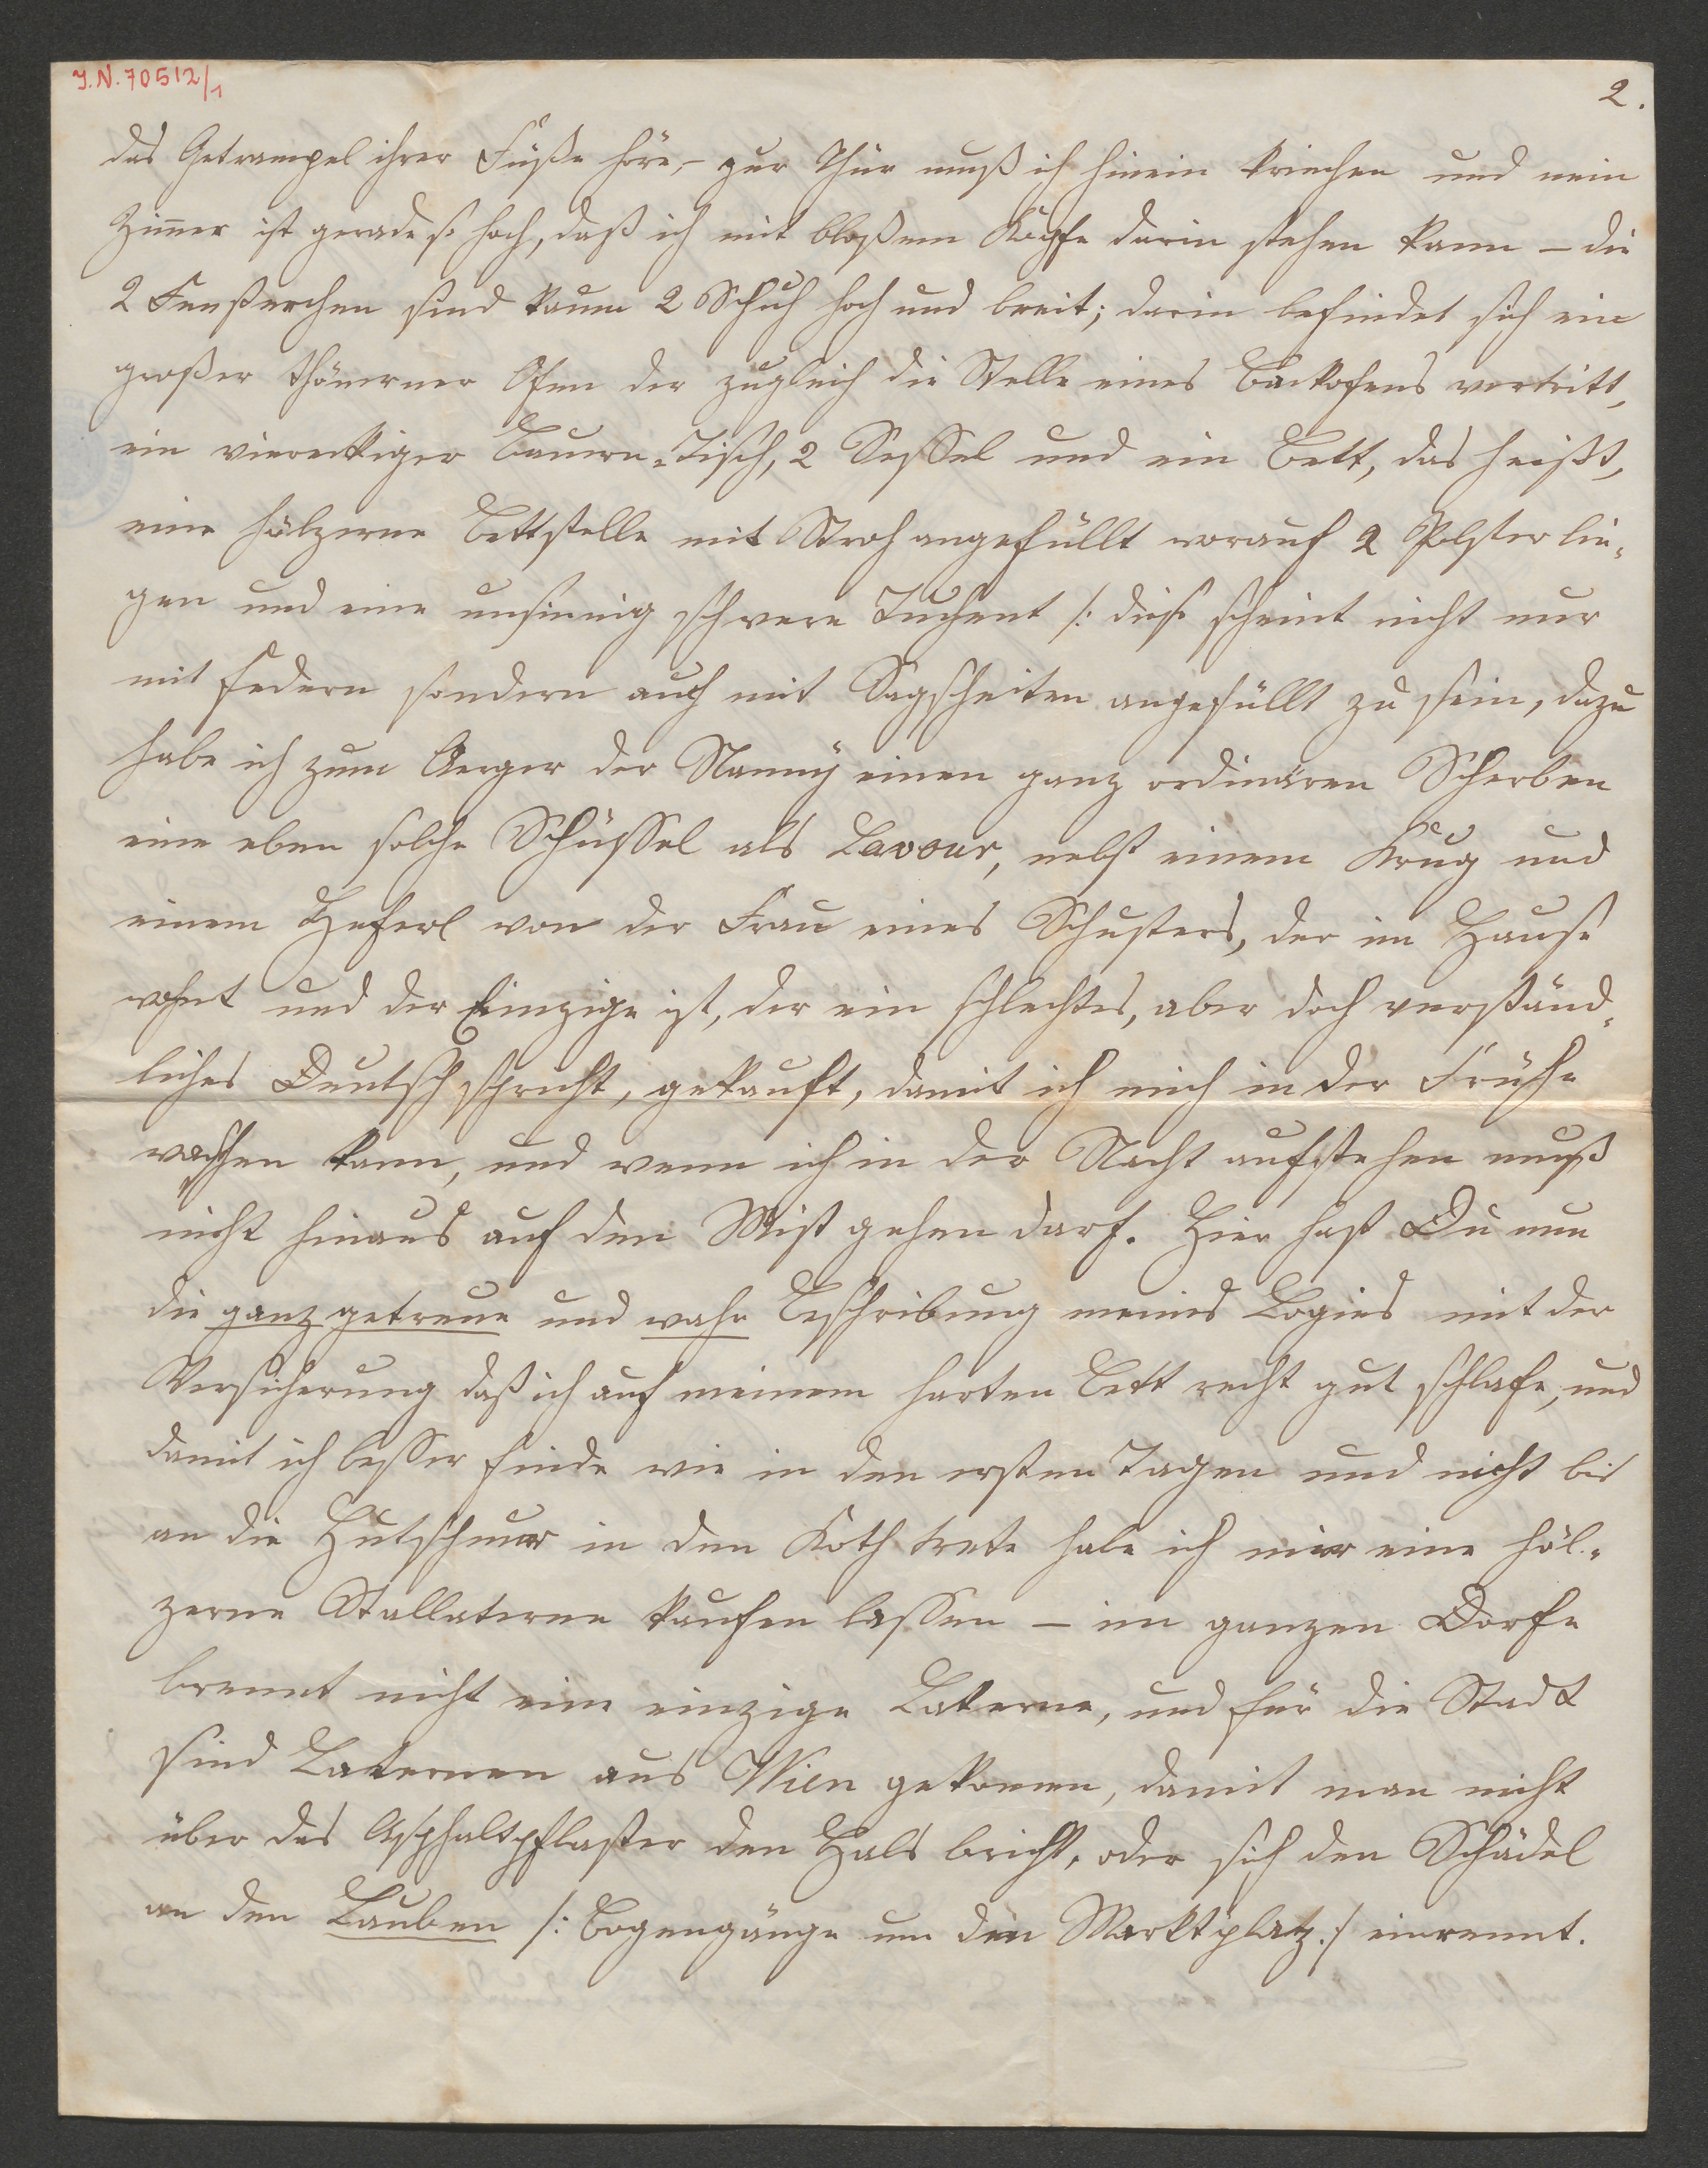 J.N. 70512/1
2.
das Getrampel ihrer Füße höre, – zur Thür muß ich hinein kriechen und mein
Zim̄er ist gerade so hoch, daß ich mit bloßem Kopfe darin stehen kann – die
2 Fensterchen sind kaum 2 Schuh hoch und breit; darin befindet sich ein
großer thönerner Ofen der zugleich die Stelle eines Backofens vertritt,
ein viereckiger Bauern-Tisch, 2 Sessel und ein Bett, das heißt,
eine hölzerne Bettstelle mit Stroh angefüllt worauf 2 Polster lie-
gen und eine unsinnig schwere Tuchent /: diese scheint nicht nur
mit Federn sondern auch mit Sagscheiten angefüllt zu sein, dazu
habe ich zum Aerger der Nanny einen ganz ordinären Scherben
eine eben solche Schüssel als Lavour, nebst einem Krug und
einem Heferl von der Frau eines Schusters, der im Hause
wohnt und der Einzige ist, der ein schlechtes, aber doch verständ-
liches Deutsch spricht, gekauft, damit ich mich in der Frühe
waschen kann, und wenn ich in der Nacht aufstehen muß
nicht hinaus auf den Mist gehen darf. Hier hast Du nun
die ganz getreue und wahre Beschreibung meines Logies mit der
Versicherung daß ich auf meinem harten Bett recht gut schlafe, und
damit ich besser finde wie in den ersten Tagen und nicht bis
an die Hutschnur in den Koth trete habe ich mir eine höl-
zerne Stallaterne kaufen lassen – im ganzen Dorfe
brennt nicht eine einzige Laterne, und für die Stadt
sind Laternen aus Wien gekom̄en, damit man nicht
über das Asphaltpflaster den Hals bricht, oder sich den Schädel
an den Lauben /: Bogengänge um den Marktplatz :/ einrennt.